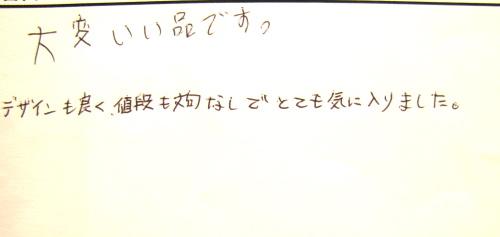 大変いい品です。
デザインも良く、値段も文句なしでとても気に入りました。